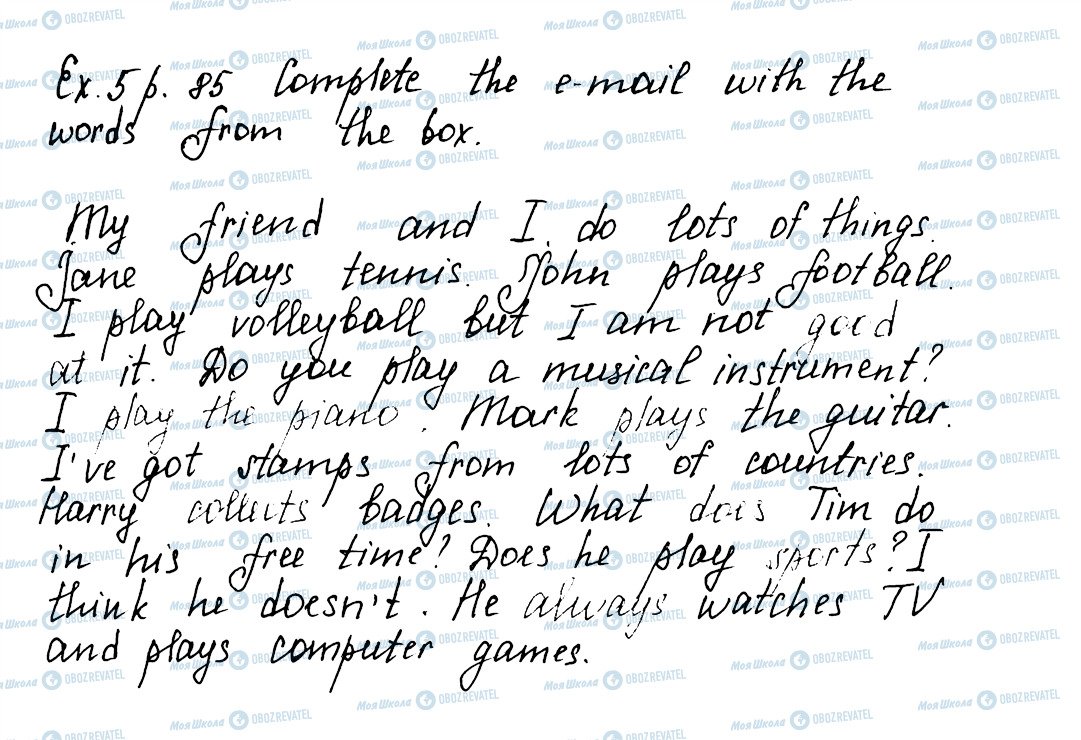 Ex. 5 p. 85 Complete the e-mail with the
words from the box.
My friend and I do lots of things.
Jane plays tennis. John plays football.
I play volleyball but I am not good
at it. Do you play a musical instrument?
I play the piano. Mark plays the guitar.
I've got stamps from lots of countries.
Harry collects badges. What does Tim do
in his free time? Does he play sports? I
think he doesn't. He always watches TV
and plays computer games.